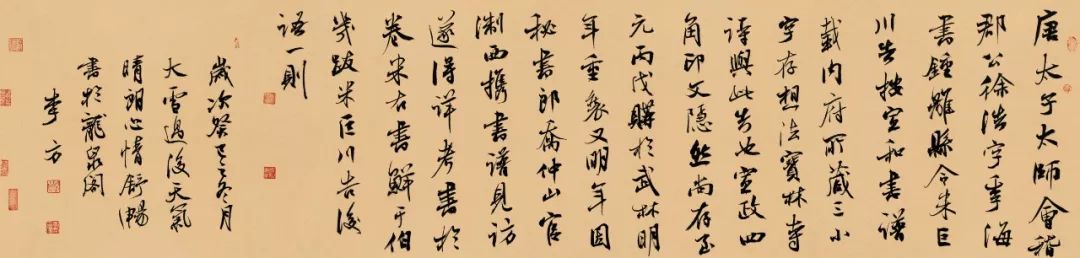 唐太子太師會稽
郡公徐浩字季海
書鍾離縣令朱巨
川告按宣和書譜
載内府所藏三小
字存想法寶林寺
詩與此告也宣政四
角印文隱然尚存至
元丙戌購於武林明
年重裝又明年因
秘書郎喬仲山官
淛西攜書譜見訪
遂得詳考書於
卷末右書鮮于伯
幾跋朱巨川告後
語一則
歲次癸巳冬月
大雪過後天氣
晴朗心情舒暢
書於龍泉閣
李方